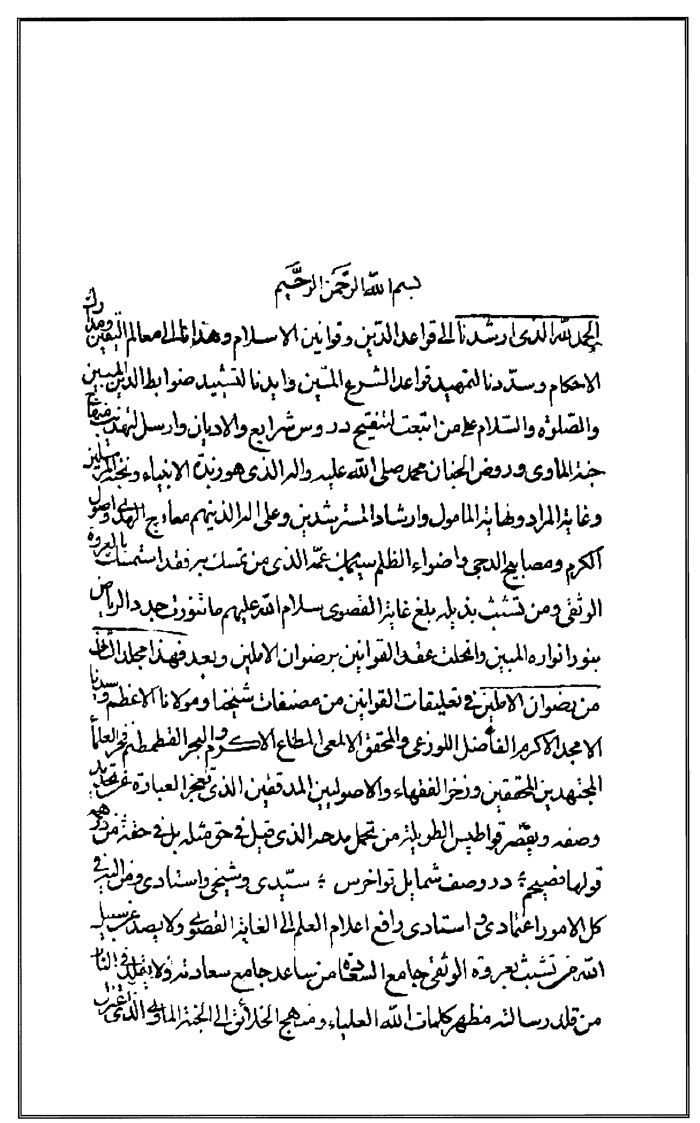 بسم الله الرَّحمن الرحَّيم
الحمد لله الذى ارشدنا الى قواعد الدّين وقوانين الاسلام وهذانا الى معالم اليقين ومدارك
الاحكام وسدّدنا لتمهيد قواعد الشرع المتين وايدنا لتشييد ضوابط الدين المبين
والصّلوة والسّلام على من انبعث لتنقيح دروس شرايع والاديان وارسل لتهذيب
جنة الماوى وروض الجنان محمد صلى الله عليه واله الذى هو زبدة الانبياء ونخبة المرسلين
وغاية المراد ونهاية المامول وارشاد المسترشدين وعلى اله الذينهم معارج الهدى واصول
الكرم ومصابيح الدجى واضواء الظلم سيما ابن عمّه الذى من تمسك به فقد استمسك بالعروة
الوثقى ومن تشبث بذيله بلغ غاية القصوى سلام الله عليهم ما تنورت حدد الرياض
بنور انواره المبين وانحلت عقد القوانين برضوان الاملين وبعد فهذا مجلد الثانى
من رضوان الاملين فى تعليقات القوانين من مصنفات شيخنا ومولانا الاعظم وسيدنا
الامجد الاكرم الفاضل اللوزعى والمحقق الالمعى المطاع الاكرم والبحر القطمطم فخر العلماء
المجتهدين المحققين وزخر الفقهاء والاصوليين المدققين الذى تعجز العبارة عن تحديد
وصفه ويقصّر قواطيس الطويلة من تحمل مدحه الذى قيل فى حق مثله بل فى حقه من
قولها فصيحم ؛ در وصف شمايل تو اخرس ؛ سيّدى وشيخى واستادى ومن اليه فى
كل الامور اعتمادى واستنادى رافع اعلام العلم الى الغاية القصوى ولا يصد عن سبيل
الله من تشبث بعروته الوثقى جامع السعادة من ساعد جامع سعادته ولا يقلد فى النار
من قلد رسالته مظهر كلمات الله العلياء ومنهج الخلائق الى الجنة الماوى الذى